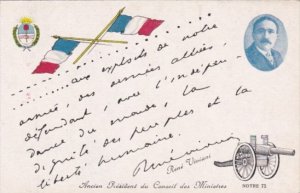 ... aux exploits de notre
armée, des armées alliées,
défendant, avec l'indépen
dance du monde, la
dignité des peuples et la
liberté humaine.
René Viviani
René Viviani
Ancien Président du Conseil des Ministres
NOTRE 75